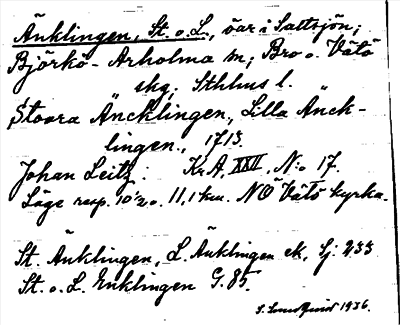 Änklingen, St. o. L., öar i Saltsjön;
Björkö-Arholma sn; Bro o. Vätö
skg, Sthlms l.
Stoora Äncklingen, Lilla Änck-
lingen, 1713.
Johan Leitz. Kr.A. XXII, N:o 17
Läge resp. 10½ o. 11,1 km. NÖ Vätö kyrka.
St. Änklingen, L. Änklingen ek, Sj. 233
St. o. L. Enklingen G. 85.
S. Lundquist 1936.